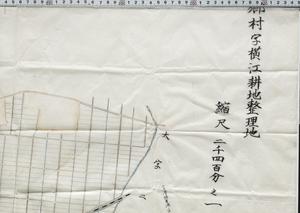 郷村字横江耕地整理地
縮尺二千四百分之一
大字